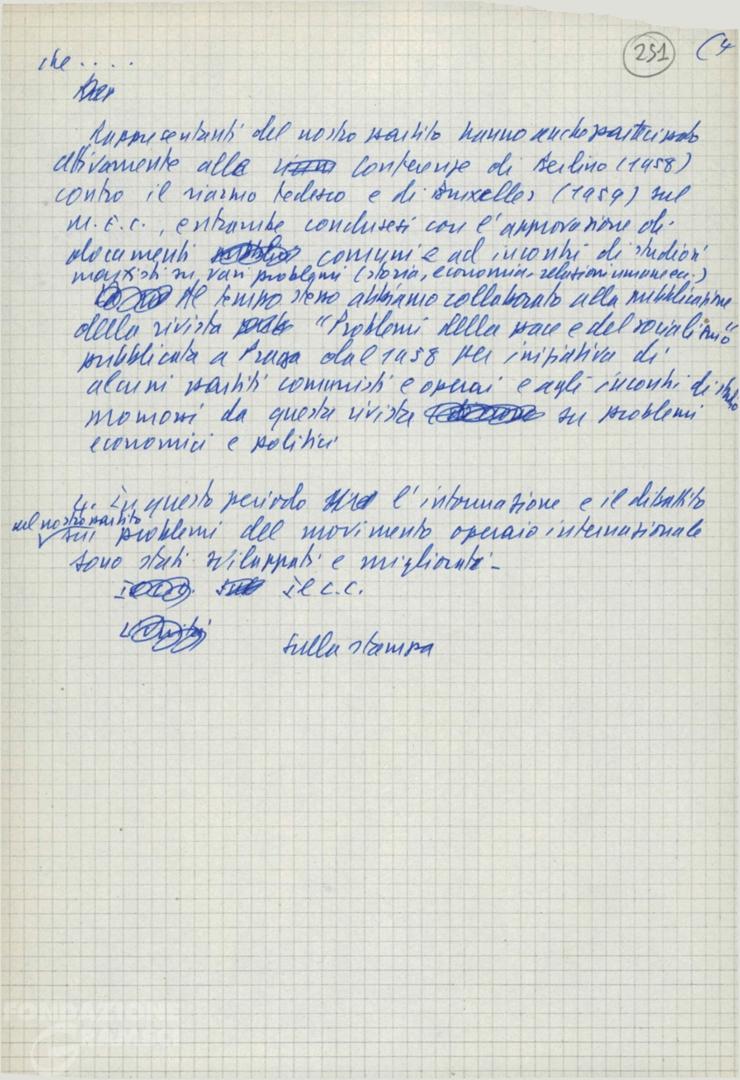 che ....
251 (4
Rappresentanti del nostro partito hanno anche partecipato
attivamente alle conferenze di Berlino (1958)
contro il riarmo tedesco e di Bruxelles (1959) sul
M.E.C., entrambe conclusesi con l'approvazione di
documenti comuni e ad incontri di studiosi
marxisti su vari problemi (storia, economia, relazioni umane ecc.)
Al tempo stesso abbiamo collaborato alla pubblicazione
della rivista "Problemi della pace e del socialismo"
pubblicata a Praga dal 1958 per iniziativa di
alcuni partiti comunisti e operai e agli incontri di studio
promossi da questa rivista su problemi
economici e politici
4. In questo periodo l'informazione e il dibattito
nel nostro partito
sui problemi del movimento operaio internazionale
sono stati sviluppati e migliorati -
il c.c.
Sulla stampa
FONDAZIONE
GRAMSCI